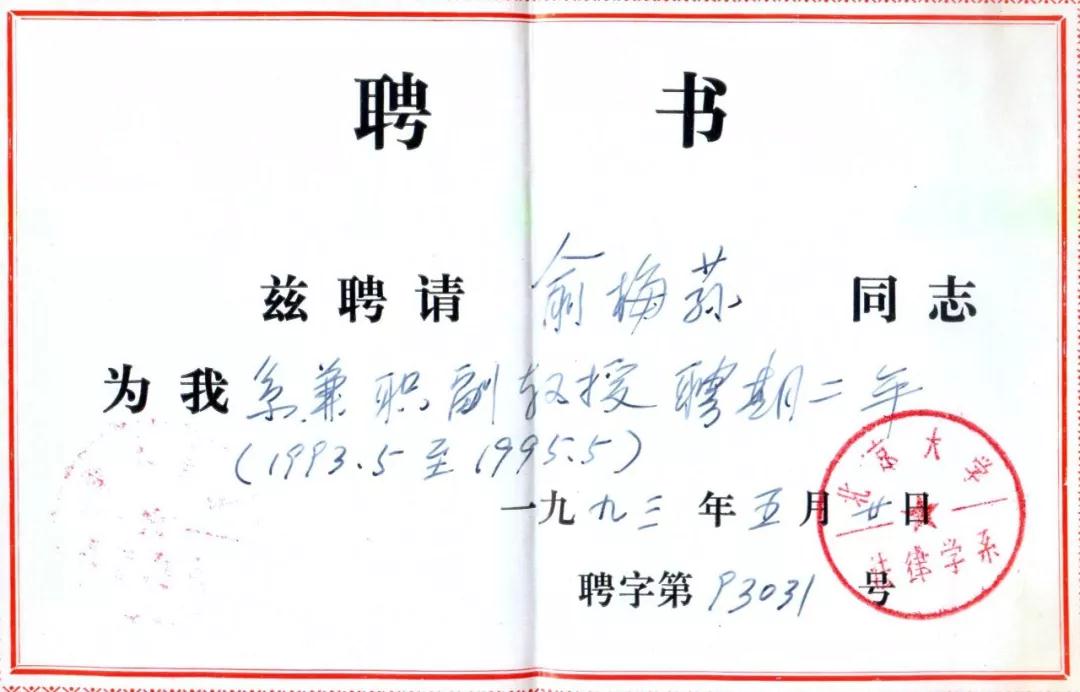 聘 书
兹聘请 俞梅荪 同志
为我系兼职副教授 聘期二年
(1993.5至1995.5)
一九九三年五月廿日
聘字第93031号
北京大学
法律学系